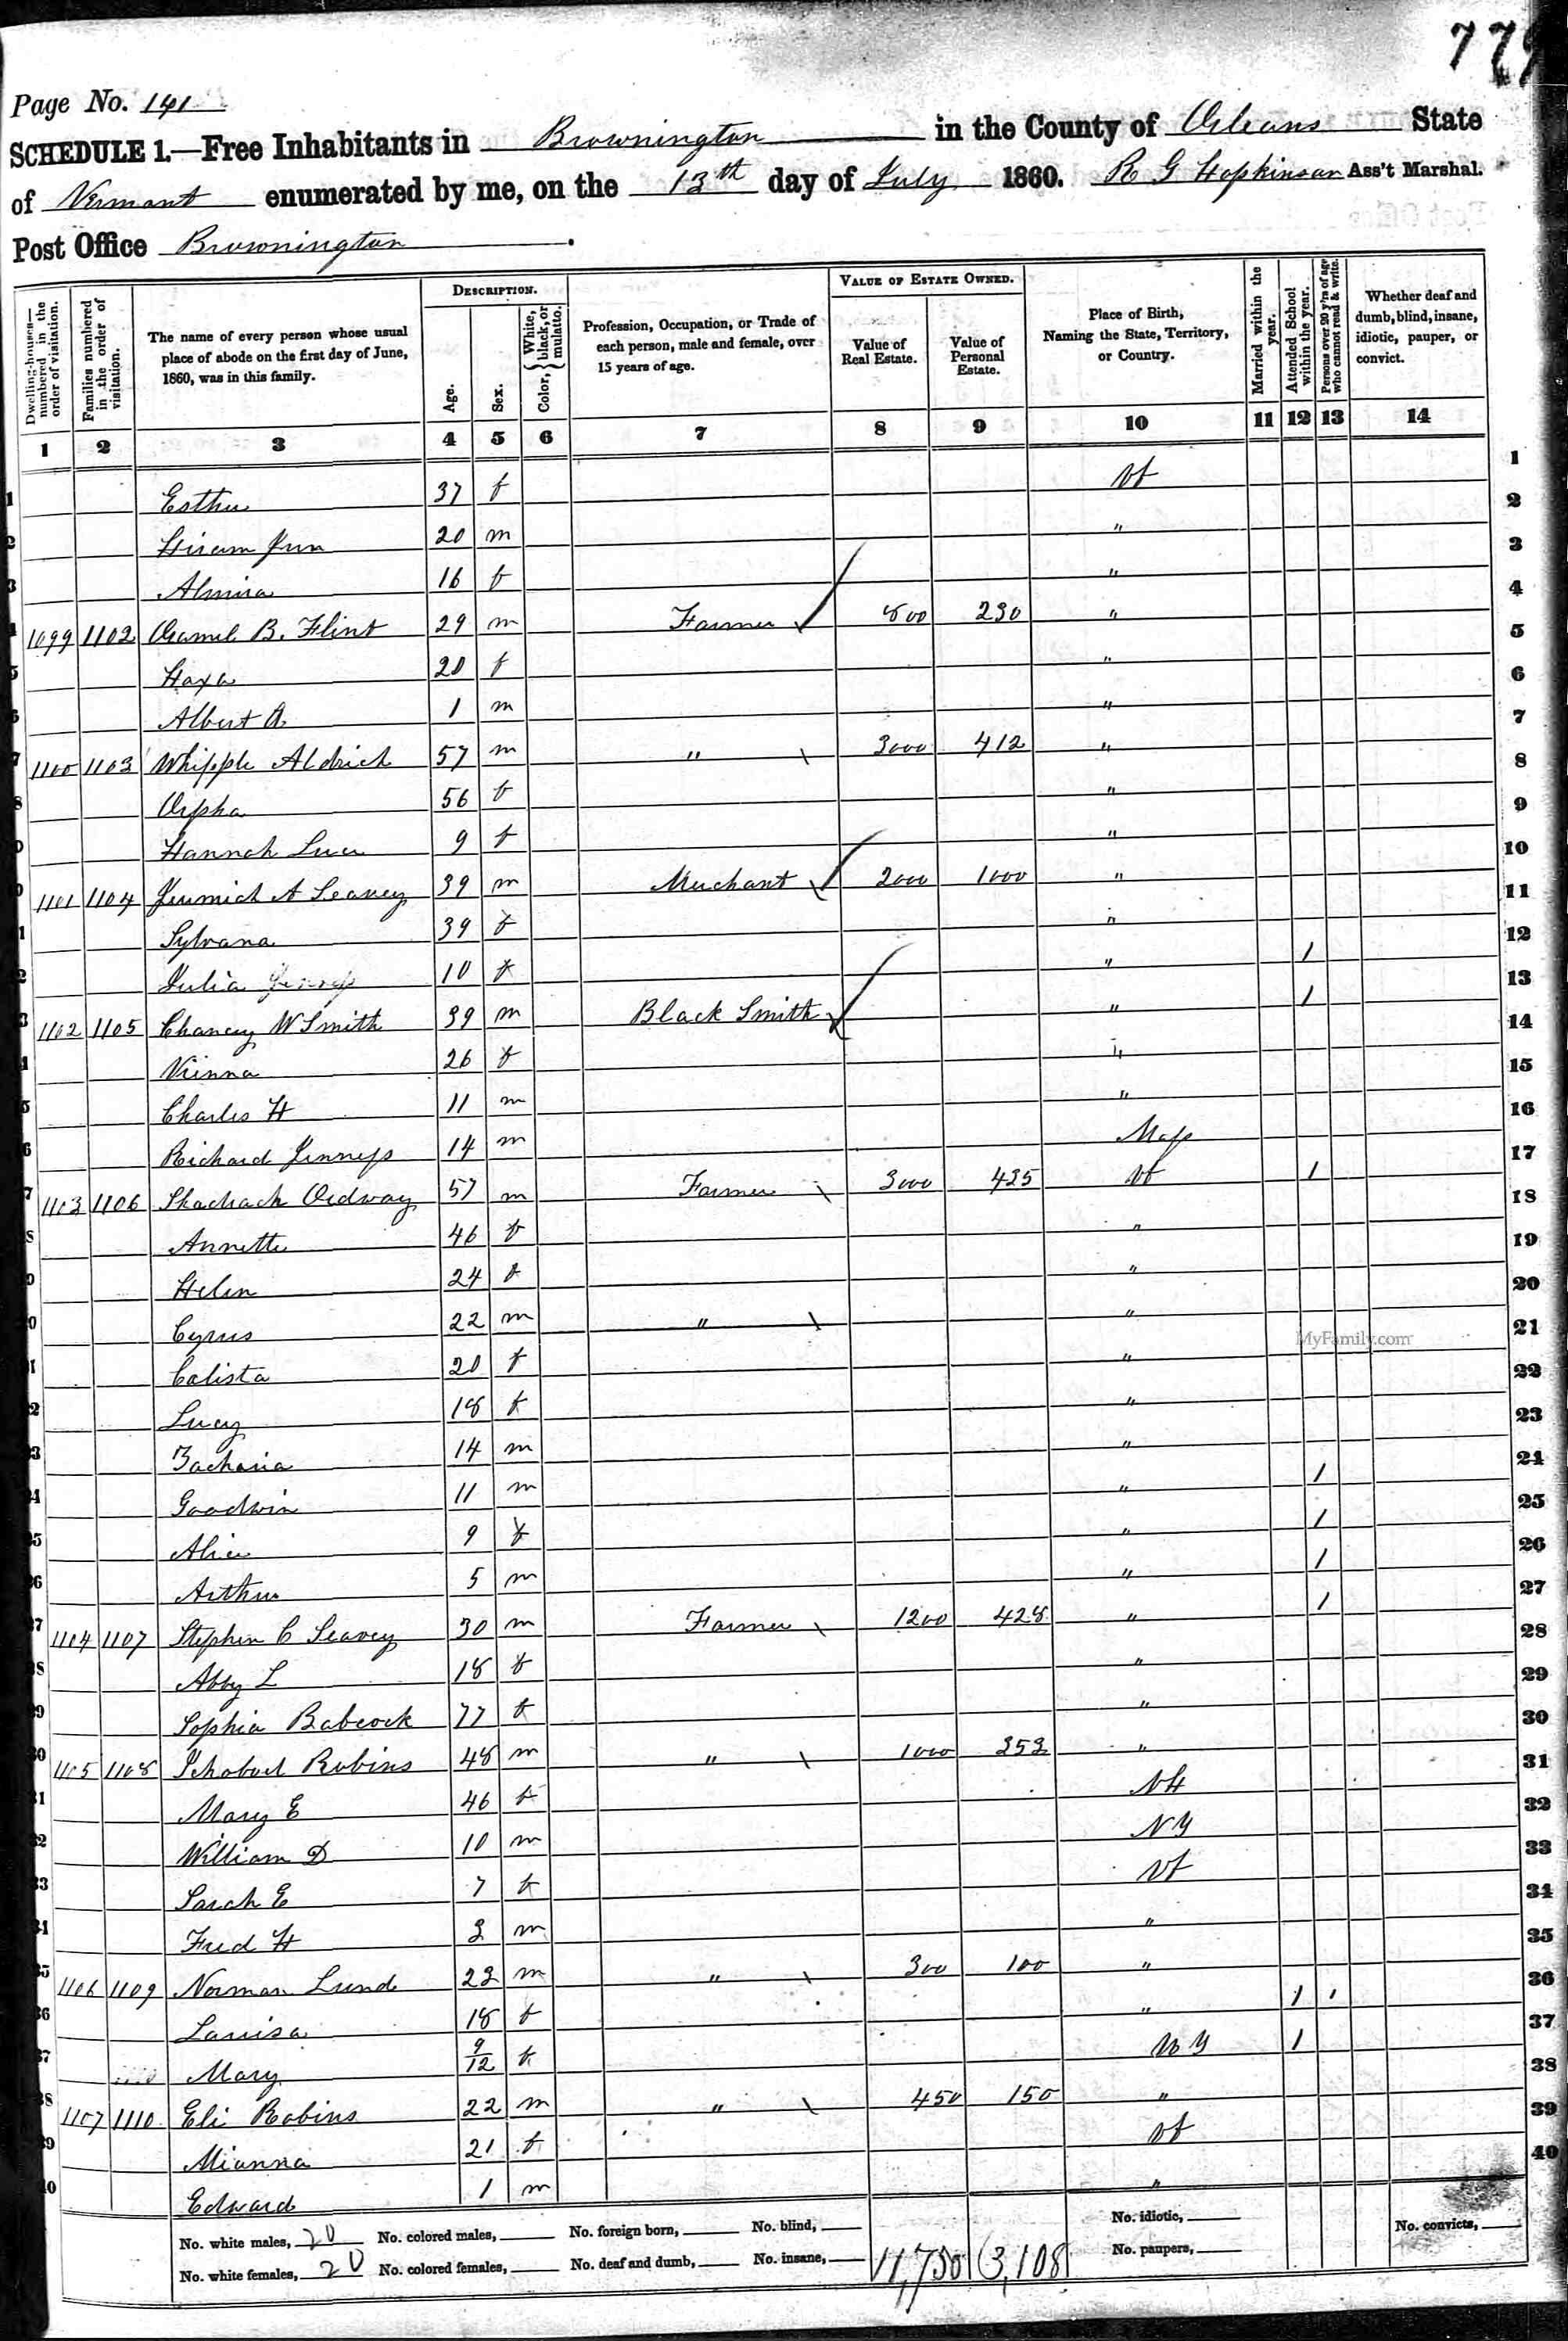 779
Page No. 141
SCHEDULE 1.—Free Inhabitants in Brownington in the County of Orleans State
of Vermont enumerated by me, on the 13th day of July 1860. R G Hopkinson Ass't Marshal.
Post Office Brownington.
Dwelling-houses—numbered in the order of visitation. Families numbered in the order of visitation. The name of every person whose usual place of abode on the first day of June, 1860, was in this family. DESCRIPTION. Age. Sex. Color, { White, black, or mulatto. Profession, Occupation, or Trade of each person, male and female, over 15 years of age. VALUE OF ESTATE OWNED. Value of Real Estate. Value of Personal Estate. Place of Birth, Naming the State, Territory, or Country. Married within the year. Attended School within the year. Persons over 20 y'rs of age who cannot read & write. Whether deaf and dumb, blind, insane, idiotic, pauper, or convict.
1 2 3 4 5 6 7 8 9 10 11 12 13 14
1 Esther 37 f Vt 1
2 Hiram Jun 20 m " 2
3 Almira 16 f " 3
4 1099 1102 B. Flint 29 m Farmer 800 230 " 4
5 20 f " 5
6 Albert A. 1 m " 6
7 1100 1103 Whipple Aldrich 57 m " 3000 412 " 7
8 Orpha 56 f " 8
9 Hannah 9 f " 9
10 1101 1104 Jeremiah A Seavey 39 m Merchant 2000 1000 " 10
11 Sylvana 39 f " 11
12 Julia 10 f " 1 12
13 1102 1105 Chancey W Smith 39 m Black Smith " 1 13
14 Vienna 26 f " 14
15 Charles H 11 m " 15
16 Richard Jenness 14 m Mass 16
17 1103 1106 Shadrach Ordway 57 m Farmer 3000 435 Vt 1 17
18 Annette 46 f " 18
19 Helen 24 f " 19
20 Cyrus 22 m " " 20
21 Calista 20 f " 21
22 Lucy 18 f " 22
23 Zacharia 14 m " 23
24 Goodwin 11 m " 1 24
25 Alice 9 f " 1 25
26 Arthur 5 m " 1 26
27 1104 1107 Stephen C Seavey 30 m Farmer 1200 428 " 1 27
28 Abby L 18 f " 28
29 Sophia Babcock 77 f " 29
30 1105 1108 Robins 48 m " 1000 353 " 30
31 Mary E 46 f NH 31
32 William D 10 m NY 32
33 Sarah E 7 f Vt 33
34 Fred H 3 m " 34
35 1106 1109 Norman Lund 23 m " 300 100 " 35
36 Louisa 18 f " 1 1 36
37 Mary 9/12 f NY 1 37
38 1107 1110 Eli Robins 22 m " 450 150 " 38
39 Mianna 21 f Vt 39
40 Edward 1 m " 40
No. white males, 20 No. colored males, No. foreign born, No. blind, No. idiotic, No. convicts,
No. white females, 20 No. colored females, No. deaf and dumb, No. insane, 11,750 3,108 No. paupers,
MyFamily.com